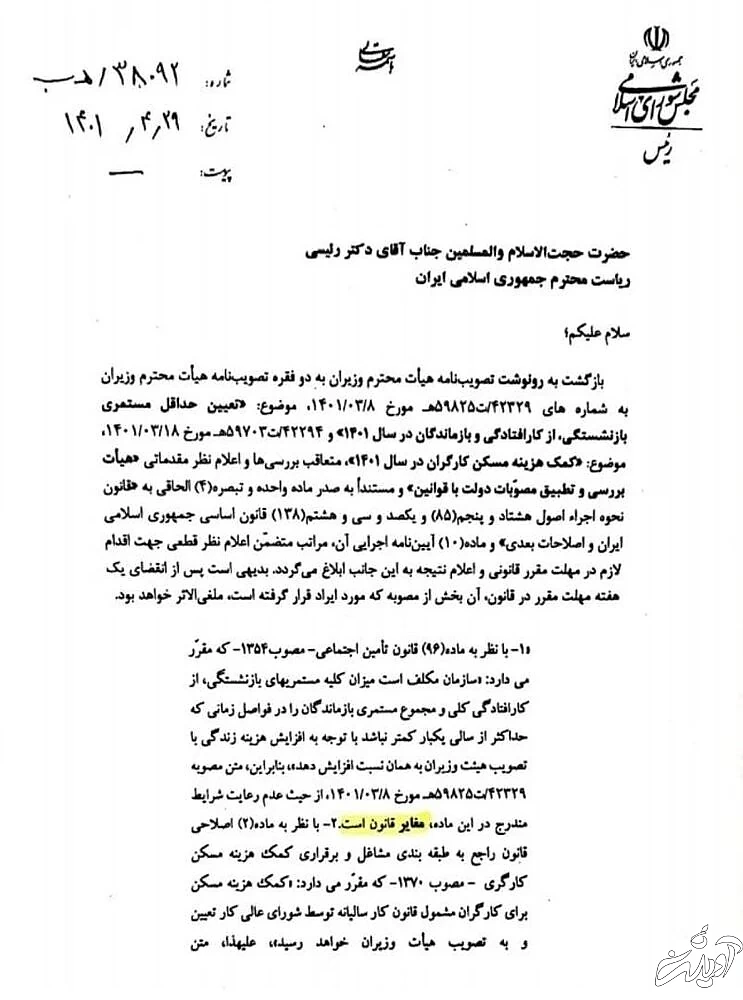 جمهوری اسلامی ایران
مجلس شورای اسلامی
رئیس
شماره: ۳۸۰۹۲/هـ ب
تاریخ: ۱۴۰۱/۴/۲۹
پیوست: —
حضرت حجت‌الاسلام والمسلمین جناب آقای دکتر رئیسی
ریاست محترم جمهوری اسلامی ایران
سلام علیکم؛
بازگشت به رونوشت تصویب‌نامه هیأت محترم وزیران به دو فقره تصویب‌نامه هیأت محترم وزیران
به شماره های ۴۲۳۲۹/ت۵۹۸۲۵هـ مورخ ۱۴۰۱/۰۳/۸، موضوع: «تعیین حداقل مستمری
بازنشستگی، از کارافتادگی و بازماندگان در سال ۱۴۰۱» و ۴۲۲۹۴/ت۵۹۷۰۳هـ مورخ ۱۴۰۱/۰۳/۱۸،
موضوع: «کمک هزینه مسکن کارگران در سال ۱۴۰۱»، متعاقب بررسی‌ها و اعلام نظر مقدماتی «هیأت
بررسی و تطبیق مصوّبات دولت با قوانین» و مستنداً به صدر ماده واحده و تبصره(۴) الحاقی به «قانون
نحوه اجراء اصول هشتاد و پنجم(۸۵) و یکصد و سی و هشتم(۱۳۸) قانون اساسی جمهوری اسلامی
ایران و اصلاحات بعدی» و ماده(۱۰) آیین‌نامه اجرایی آن، مراتب متضمّن اعلام نظر قطعی جهت اقدام
لازم در مهلت مقرر قانونی و اعلام نتیجه به این جانب ابلاغ می‌گردد. بدیهی است پس از انقضای یک
هفته مهلت مقرر در قانون، آن بخش از مصوبه که مورد ایراد قرار گرفته است، ملغی‌الاثر خواهد بود.
«۱- با نظر به ماده(۹۶) قانون تأمین اجتماعی- مصوب۱۳۵۴- که مقرّر
می دارد: «سازمان مکلف است میزان کلیه مستمریهای بازنشستگی، از
کارافتادگی کلی و مجموع مستمری بازماندگان را در فواصل زمانی که
حداکثر از سالی یکبار کمتر نباشد با توجه به افزایش هزینه زندگی با
تصویب هیئت وزیران به همان نسبت افزایش دهد»، بنابراین، متن مصوبه
۴۲۳۲۹/ت۵۹۸۲۵هـ مورخ ۱۴۰۱/۰۳/۸، از حیث عدم رعایت شرایط
مندرج در این ماده، مغایر قانون است.۲- با نظر به ماده(۲) اصلاحی
قانون راجع به طبقه بندی مشاغل و برقراری کمک هزینه مسکن
کارگری - مصوب ۱۳۷۰- که مقرّر می دارد: «کمک هزینه مسکن
برای کارگران مشمول قانون کار سالیانه توسط شورای عالی کار تعیین
و به تصویب هیأت وزیران خواهد رسید»، علیهذا، متن